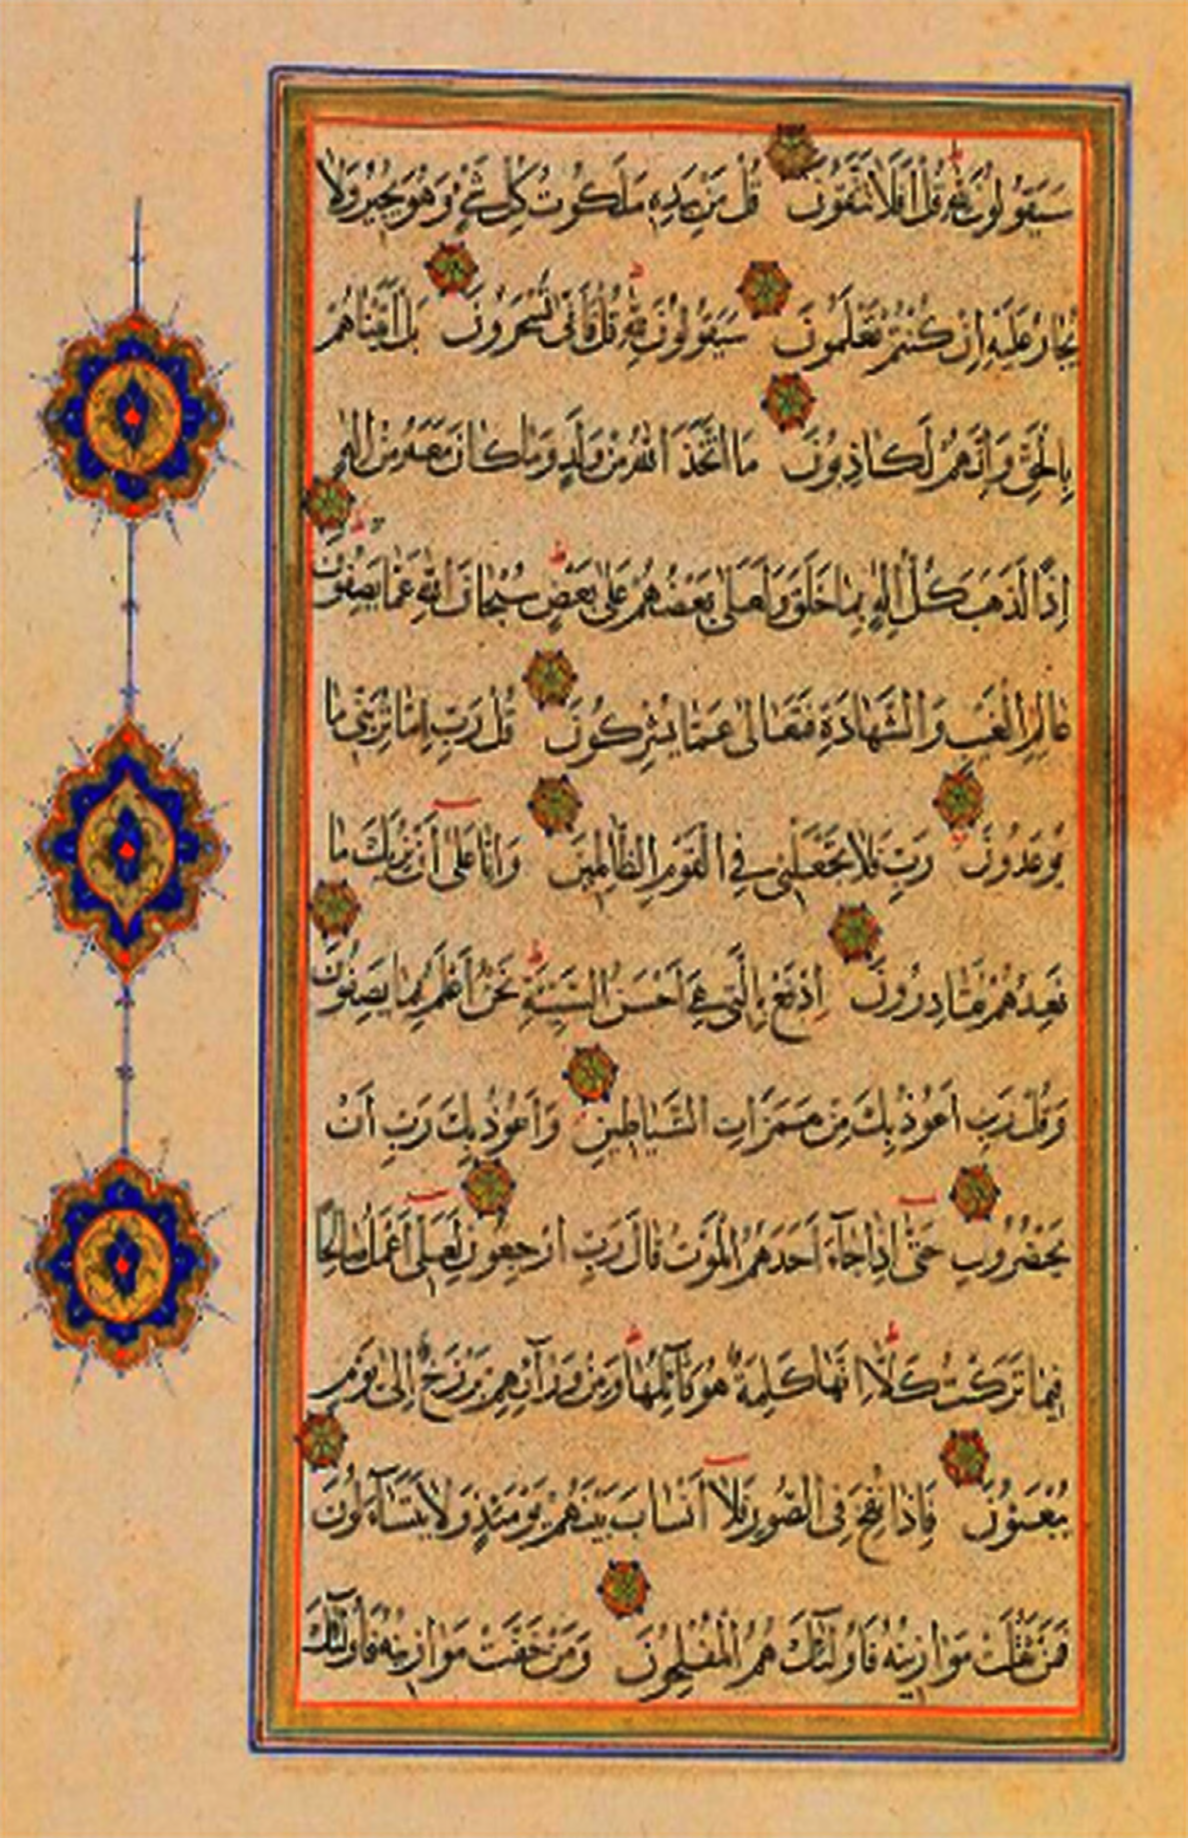 سَيَقُولُونَ لِلَّهِ قُلْ أَفَلَا تَتَّقُونَ قُلْ مَنْ بِيَدِهِ مَلَكُوتُ كُلِّ شَيْءٍ وَهُوَ يُجِيرُ وَلَا
يُجَارُ عَلَيْهِ إِنْ كُنْتُمْ تَعْلَمُونَ سَيَقُولُونَ لِلَّهِ قُلْ فَأَنَّى تُسْحَرُونَ بَلْ أَتَيْنَاهُمْ
بِالْحَقِّ وَإِنَّهُمْ لَكَاذِبُونَ مَا اتَّخَذَ اللَّهُ مِنْ وَلَدٍ وَمَا كَانَ مَعَهُ مِنْ إِلَهٍ
إِذًا لَذَهَبَ كُلُّ إِلَهٍ بِمَا خَلَقَ وَلَعَلَى بَعْضُهُمْ عَلَى بَعْضٍ سُبْحَانَ اللَّهِ عَمَّا يَصِفُونَ
عَالِمِ الْغَيْبِ وَالشَّهَادَةِ فَتَعَالَى عَمَّا يُشْرِكُونَ قُلْ رَبِّ إِمَّا تُرِيَنِّي مَا
يُوعَدُونَ رَبِّ فَلَا تَجْعَلْنِي فِي الْقَوْمِ الظَّالِمِينَ وَإِنَّا عَلَى أَنْ نُرِيَكَ مَا
نَعِدُهُمْ لَقَادِرُونَ ادْفَعْ بِالَّتِي هِيَ أَحْسَنُ السَّيِّئَةَ نَحْنُ أَعْلَمُ بِمَا يَصِفُونَ
وَقُلْ رَبِّ أَعُوذُ بِكَ مِنْ هَمَزَاتِ الشَّيَاطِينِ وَأَعُوذُ بِكَ رَبِّ أَنْ
يَحْضُرُونِ حَتَّى إِذَا جَاءَ أَحَدَهُمُ الْمَوْتُ قَالَ رَبِّ ارْجِعُونِ لَعَلِّي أَعْمَلُ صَالِحًا
فِيمَا تَرَكْتُ كَلَّا إِنَّهَا كَلِمَةٌ هُوَ قَائِلُهَا وَمِنْ وَرَائِهِمْ بَرْزَخٌ إِلَى يَوْمِ
يُبْعَثُونَ فَإِذَا نُفِخَ فِي الصُّورِ فَلَا أَنْسَابَ بَيْنَهُمْ يَوْمَئِذٍ وَلَا يَتَسَاءَلُونَ
فَمَنْ ثَقُلَتْ مَوَازِينُهُ فَأُولَئِكَ هُمُ الْمُفْلِحُونَ وَمَنْ خَفَّتْ مَوَازِينُهُ فَأُولَئِكَ